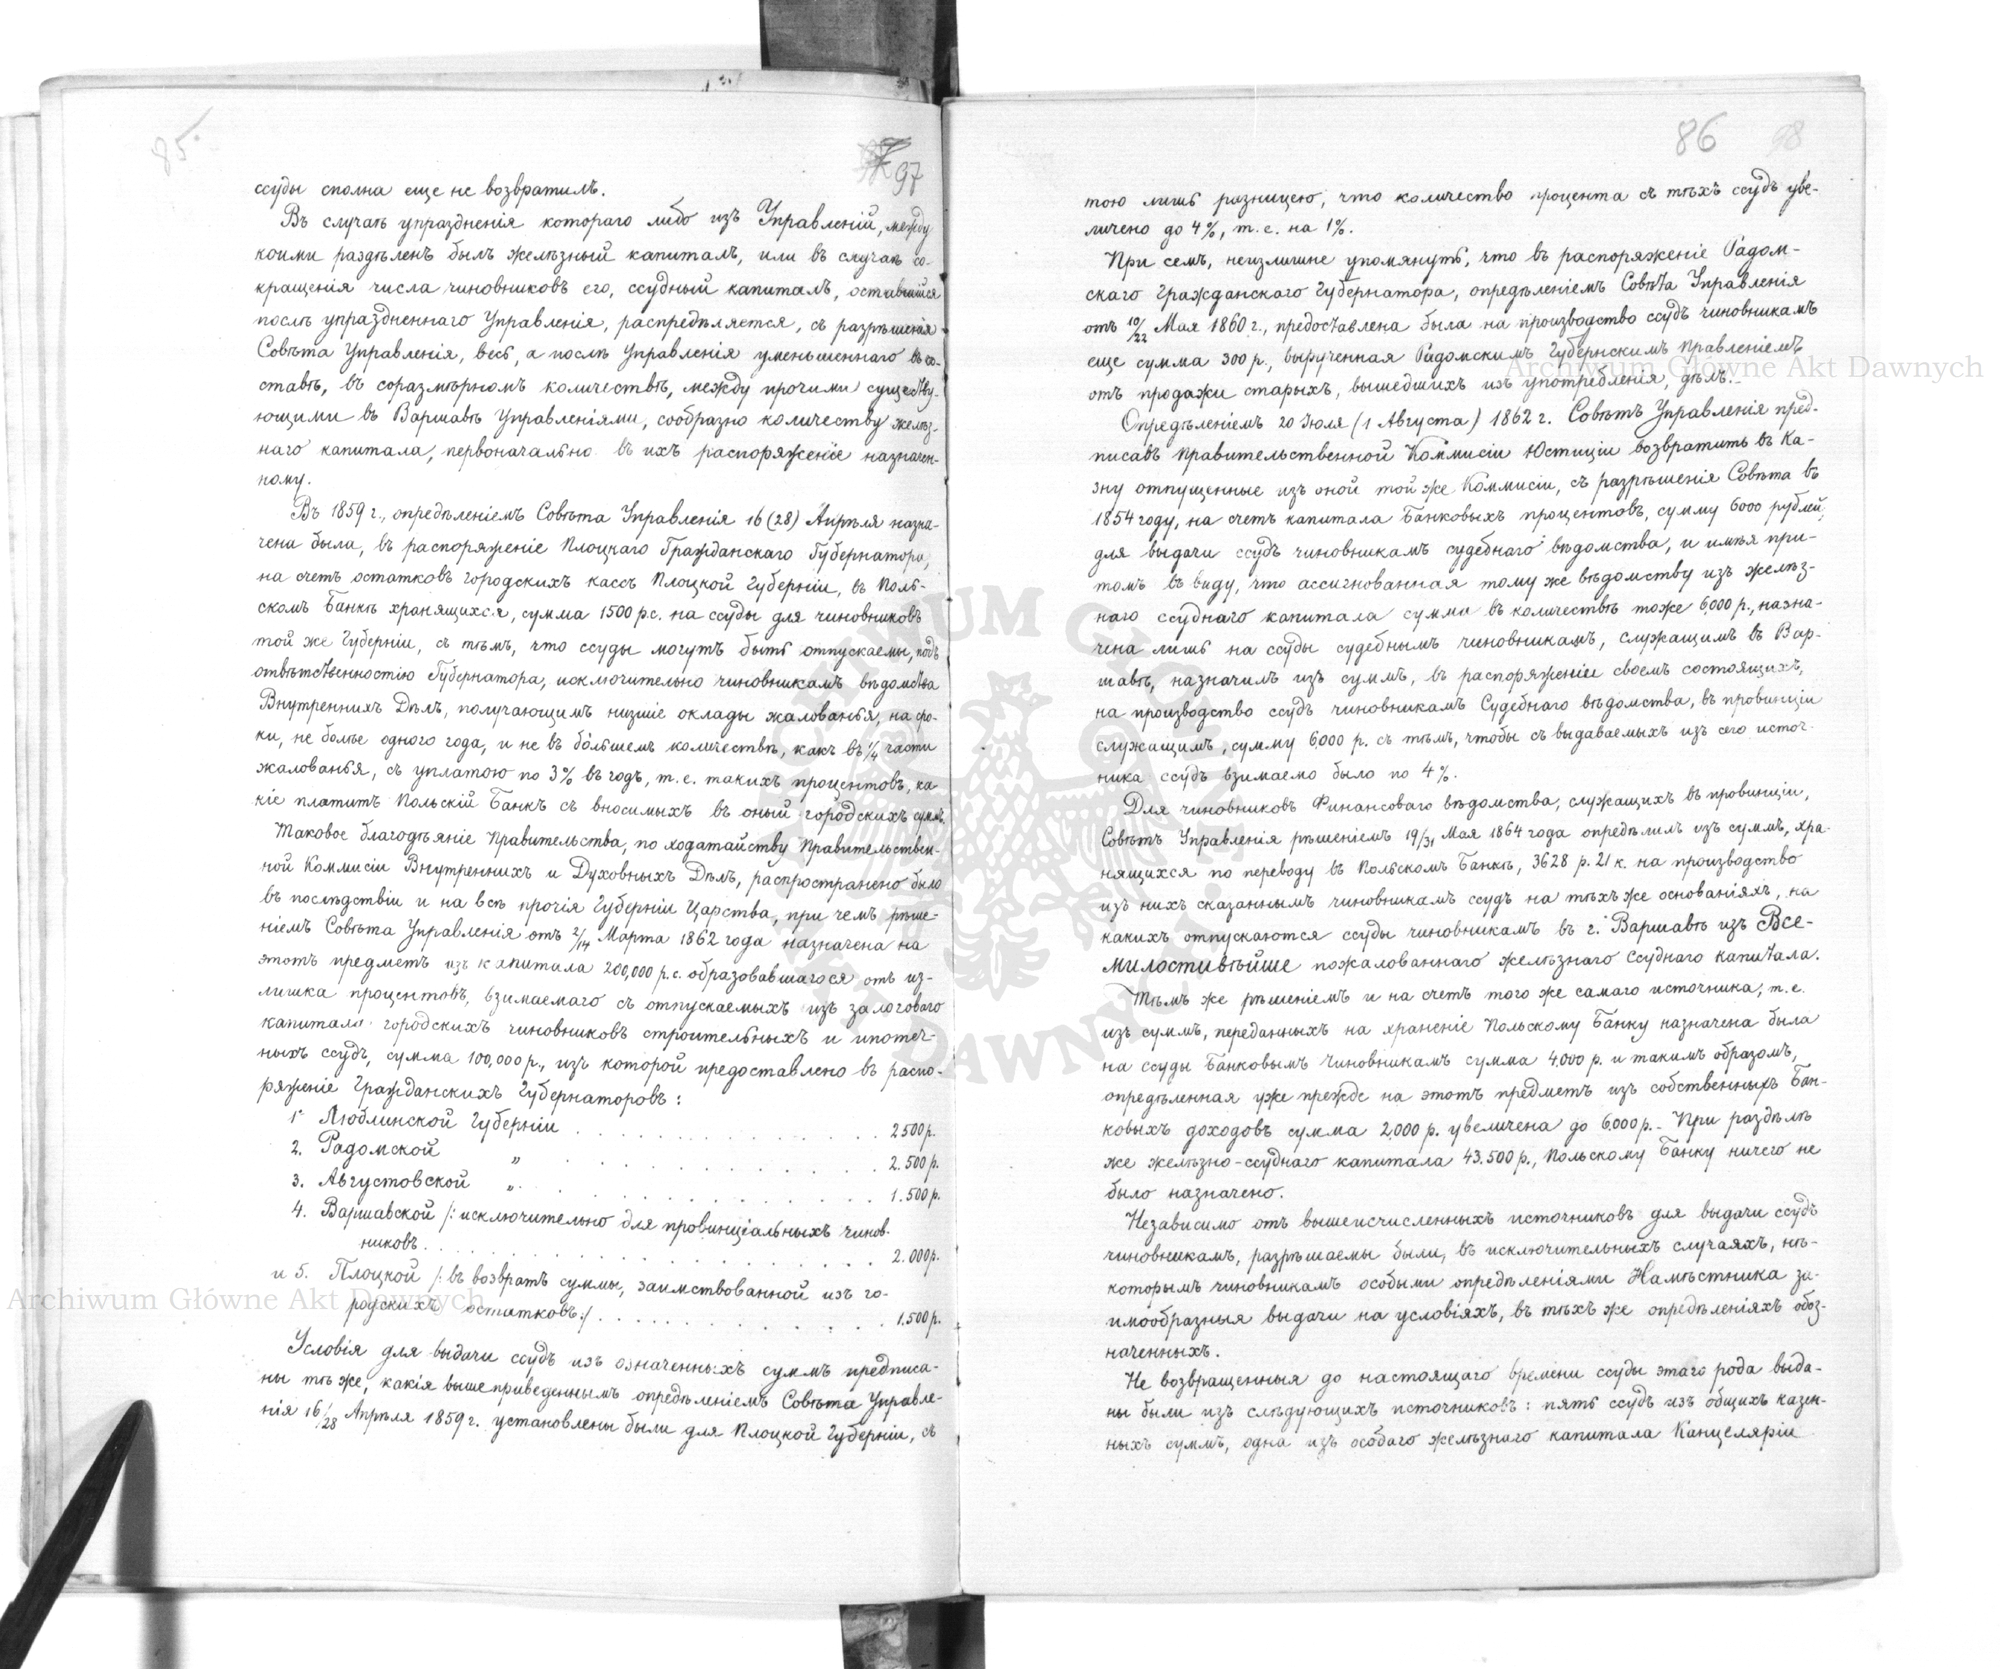 85
97
ссуды сполна еще не возвратилъ.
Въ случаѣ упраздненія котораго либо изъ Управленій, между
коими раздѣленъ былъ желѣзный капиталъ, или въ случаѣ со-
кращенія числа чиновниковъ его, ссудный капиталъ, оставшійся
послѣ упраздненнаго Управленія, распредѣляется, съ разрѣшенія
Совѣта Управленія, весь, а послѣ Управленія уменьшеннаго въ со-
ставѣ, въ соразмѣрномъ количествѣ, между прочими существу-
ющими въ Варшавѣ Управленіями, сообразно количеству желѣз-
наго капитала, первоначально въ ихъ распоряженіе назначен-
ному.
Въ 1859 г., опредѣленіемъ Совѣта Управленія 16 (28) Апрѣля назна-
чена была, въ распоряженіе Плоцкаго Гражданскаго Губернатора,
на счетъ остатковъ городскихъ кассъ Плоцкой Губерніи, въ Поль-
скомъ Банкѣ хранящихся, сумма 1500 р.с. на ссуды для чиновниковъ
той же Губерніи, съ тѣмъ, что ссуды могутъ быть отпускаемы, подъ
отвѣтственностію Губернатора, исключительно чиновникамъ вѣдомства
Внутреннихъ Дѣлъ, получающимъ низшіе оклады жалованья, на сро-
ки, не болѣе одного года, и не въ бо́льшемъ количествѣ, какъ въ 1/4 части
жалованья, съ уплатою по 3% въ годъ, т.е. такихъ процентовъ, ка-
кіе платитъ Польскій Банкъ съ вносимыхъ въ оный городскихъ суммъ.
Таковое благодѣяніе Правительства, по ходатайству Правительствен-
ной Коммисіи Внутреннихъ и Духовныхъ Дѣлъ, распространено было
въ послѣдствіи и на всѣ прочія Губерніи Царства, при чемъ рѣше-
ніемъ Совѣта Управленія отъ 2/14 Марта 1862 года назначена на
этотъ предметъ изъ капитала 200,000 р.с. образовавшагося отъ из-
лишка процентовъ, взимаемаго съ отпускаемыхъ изъ залоговаго
капитала городскихъ чиновниковъ строительныхъ и ипотеч-
ныхъ ссудъ, сумма 100,000 р., изъ которой предоставлено въ распо-
ряженіе Гражданскихъ Губернаторовъ:
1. Люблинской Губерніи . . . . . . . . . . . . 2500 р.
2. Радомской „ . . . . . . . . . . . 2.500 р.
3. Августовской „ . . . . . . . . . . . 1.500 р.
4. Варшавской /: исключительно для провинціальныхъ чинов-
никовъ . . . . . . . . . . . . . . . 2.000 р.
и 5. Плоцкой /: въ возвратъ суммы, заимствованной изъ го-
родскихъ остатковъ :/ . . . . . . . . . . 1.500 р.
Условія для выдачи ссудъ изъ означенныхъ суммъ предписа-
ны тѣ же, какія вышеприведеннымъ опредѣленіемъ Совѣта Управле-
нія 16/28 Апрѣля 1859 г. установлены были для Плоцкой Губерніи, съ
86
98
тою лишь разницею, что количество процента съ тѣхъ ссудъ уве-
личено до 4%, т.е. на 1%.
При семъ, неизлишне упомянуть, что въ распоряженіе Радом-
скаго Гражданскаго Губернатора, опредѣленіемъ Совѣта Управленія
отъ 10/22 Мая 1860 г., предоставлена была на производство ссудъ чиновникамъ
еще сумма 300 р., вырученная Радомскимъ Губернскимъ Правленіемъ
отъ продажи старыхъ, вышедшихъ изъ употребленія, дѣлъ.
Опредѣленіемъ 20 Іюля (1 Августа) 1862 г. Совѣтъ Управленія пред-
писавъ Правительственной Коммисіи Юстиціи возвратить въ Ка-
зну отпущенные изъ оной той же Коммисіи, съ разрѣшенія Совѣта въ
1854 году, на счетъ капитала Банковыхъ процентовъ, сумму 6000 рублей,
для выдачи ссудъ чиновникамъ судебнаго вѣдомства, и имѣя при-
томъ въ виду, что ассигнованная тому же вѣдомству изъ желѣз-
наго ссуднаго капитала сумма въ количествѣ тоже 6,000 р., назна-
чена лишь на ссуды судебнымъ чиновникамъ, служащимъ въ Вар-
шавѣ, назначилъ изъ суммъ, въ распоряженіи своемъ состоящихъ,
на производство ссудъ чиновникамъ Судебнаго вѣдомства, въ провинціи
служащимъ, сумму 6,000 р. съ тѣмъ, чтобы съ выдаваемыхъ изъ сего источ-
ника ссудъ взимаемо было по 4%.
Для чиновниковъ Финансоваго вѣдомства, служащихъ въ провинціи,
Совѣтъ Управленія рѣшеніемъ 19/31 Мая 1864 года опредѣлилъ изъ суммъ, хра-
нящихся по переводу въ Польскомъ Банкѣ, 3628 р. 21 к. на производство
изъ нихъ сказаннымъ чиновникамъ ссудъ на тѣхъ же основаніяхъ, на
какихъ отпускаются ссуды чиновникамъ въ г. Варшавѣ изъ Все-
милостивѣйше пожалованнаго желѣзнаго ссуднаго капитала.
Тѣмъ же рѣшеніемъ и на счетъ того же самаго источника, т.е.
изъ суммъ, переданныхъ на храненіе Польскому Банку назначена была
на ссуды Банковымъ чиновникамъ сумма 4.000 р. и такимъ образомъ,
опредѣленная уже прежде на этотъ предметъ изъ собственныхъ Бан-
ковыхъ доходовъ сумма 2,000 р. увеличена до 6,000 р. - При раздѣлѣ
же желѣзно-ссуднаго капитала 43.500 р., Польскому Банку ничего не
было назначено.
Независимо отъ вышеисчисленныхъ источниковъ для выдачи ссудъ
чиновникамъ, разрѣшаемы были, въ исключительныхъ случаяхъ, нѣ-
которымъ чиновникамъ особыми опредѣленіями Намѣстника за-
имообразныя выдачи на условіяхъ, въ тѣхъ же опредѣленіяхъ обоз-
наченныхъ.
Не возвращенныя до настоящаго времени ссуды этаго рода выда-
ны были изъ слѣдующихъ источниковъ: пять ссудъ изъ общихъ казен-
ныхъ суммъ, одна изъ особаго желѣзнаго капитала Канцеляріи
Archiwum Główne Akt Dawnych
Archiwum Główne Akt Dawnych
ARCHIWUM GŁÓWNE AKT DAWNYCH